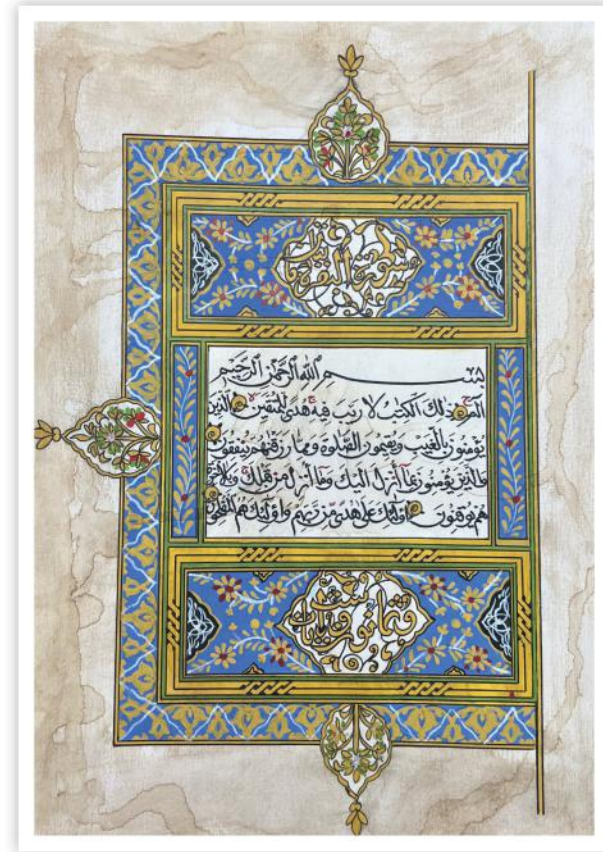 سورة البقرة
بسم الله الرحمن الرحيم
الم ذلك الكتب لا ريب فيه هدى للمتقين الذين
يؤمنون بالغيب ويقيمون الصلوة ومما رزقنهم ينفقون
والذين يؤمنون بما أنزل اليك وما أنزل من قبلك وبالاخرة
هم يوقنون اولئك على هدى من ربهم واولئك هم المفلحون